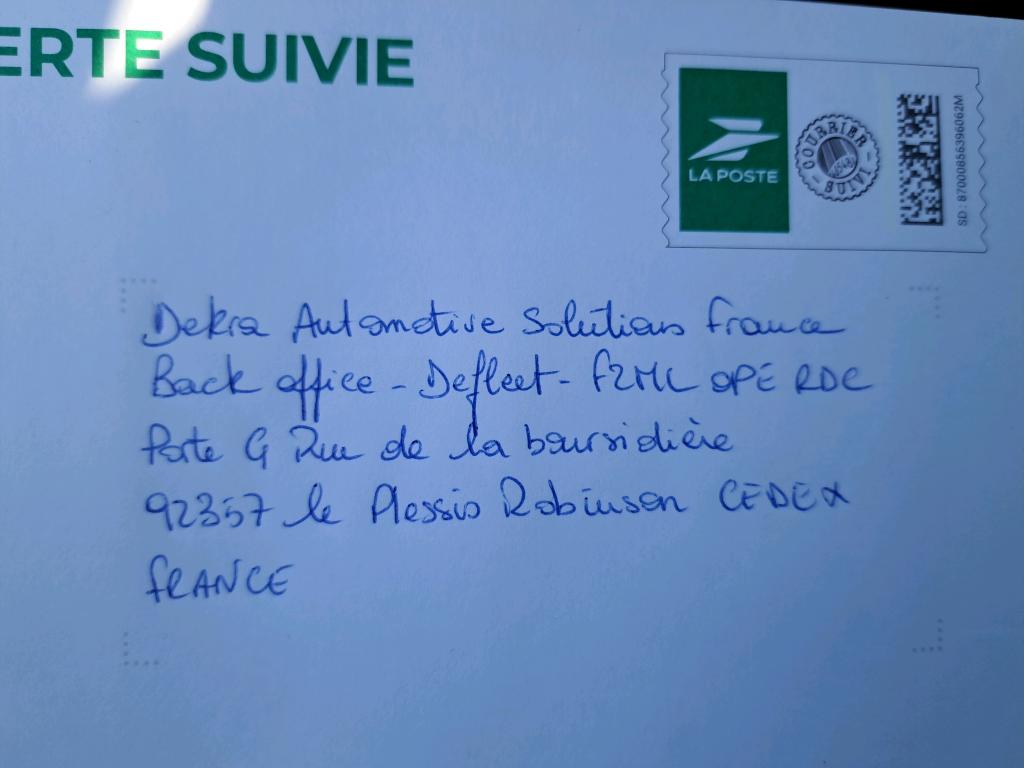 ERTE SUIVIE
LA POSTE
COURRIER
SUIVI
SD : 87000856396062M
Dekra Automotive Solutions France
Back office - Defleet - F2ML OPE RDC
Porte G Rue de la boursidière
92357 le Plessis Robinson CEDEX
FRANCE